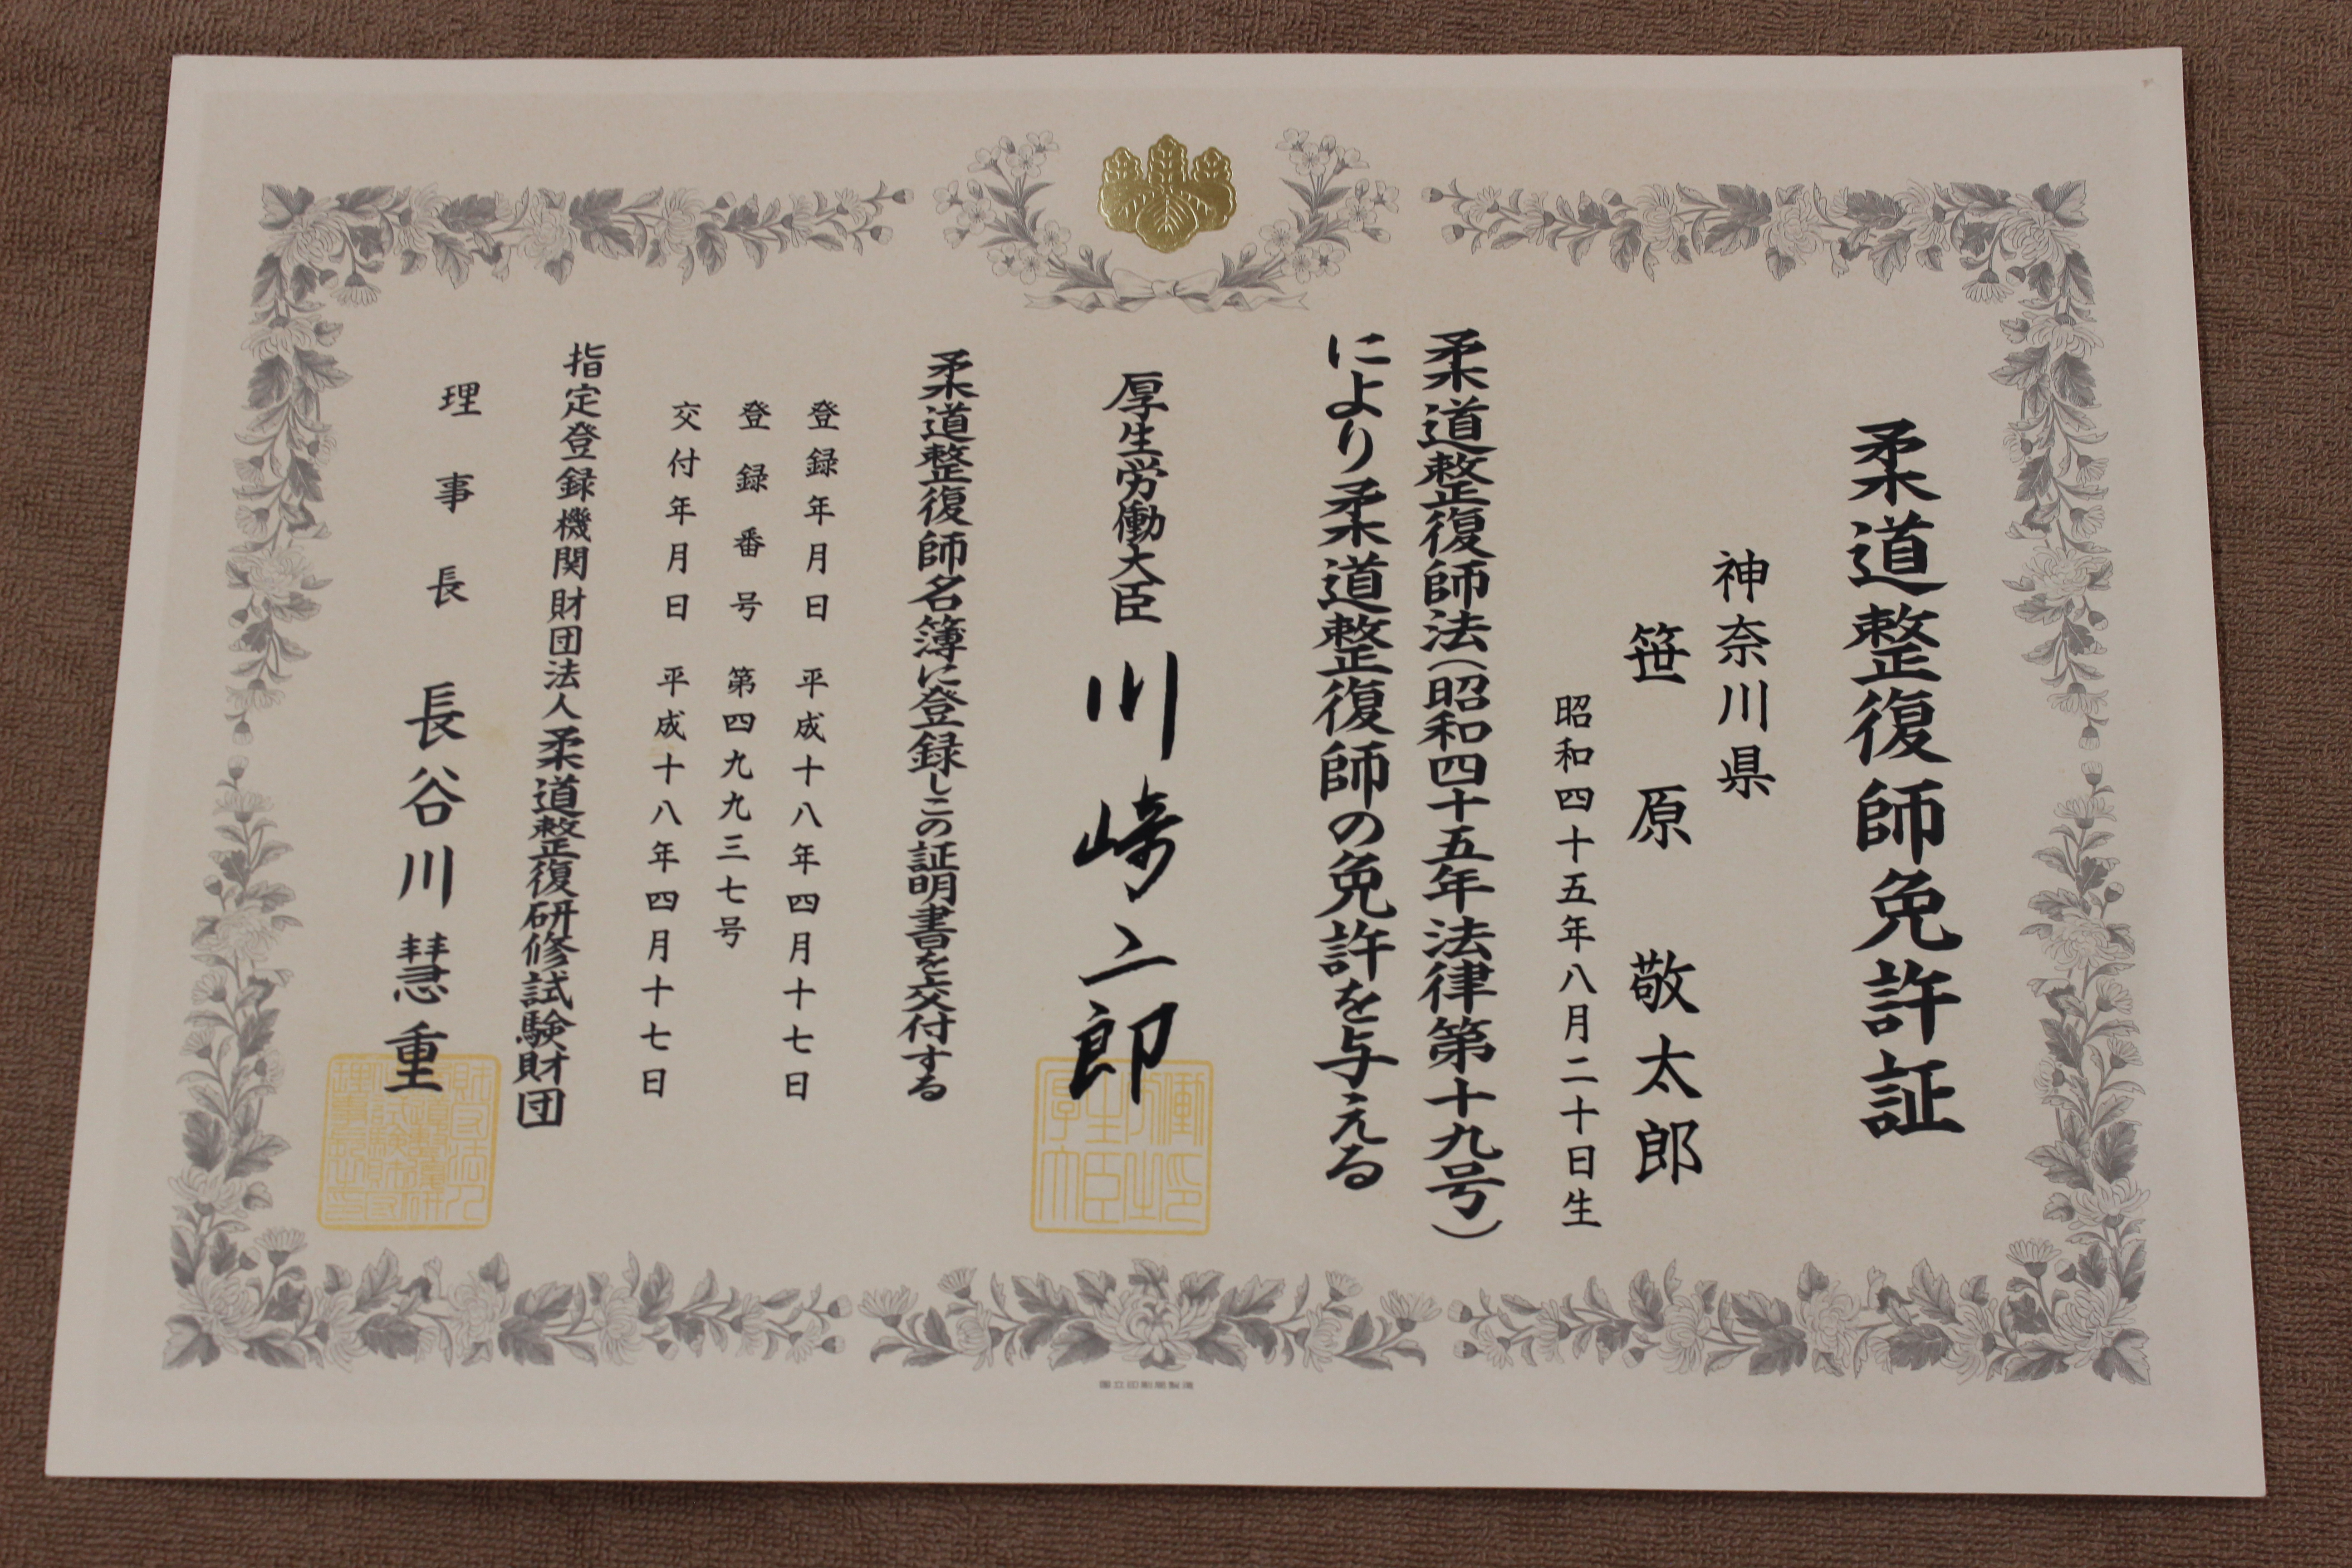 柔道整復師免許証
神奈川県
笹原 敬太郎
昭和四十五年八月二十日生
柔道整復師法(昭和四十五年法律第十九号)
により柔道整復師の免許を与える
厚生労働大臣 川崎二郎
柔道整復師名簿に登録しこの証明書を交付する
登録年月日 平成十八年四月十七日
登録番号 第四九九三七号
交付年月日 平成十八年四月十七日
指定登録機関財団法人柔道整復研修試験財団
理事長 長谷川慧重
国立印刷局製造